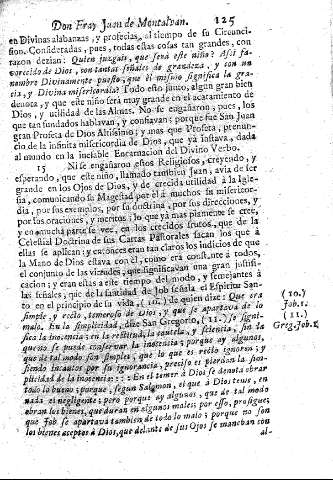 Don Fray Juan de Montalvan. 125
en Divinas alabanzas, y profecias, al tiempo de su Circunci-
sion. Consideradas, pues, todas estas cosas tan grandes, con
razon dezian: Quien juzgais, que será este niño? Assi fa-
vorecido de Dios, con tantas señales de grandeza, y con un
nombre Divinamente puesto, que él mismo significa la gra-
cia, y Divina misericordia? Todo esto junto, algun gran bien
denota, y que este niño será muy grande en el acatamiento de
Dios, y utilidad de las Almas. No se engañaron, pues, los
que tan fundados hablavan, y confiavan; porque fue San Juan
gran Profeta de Dios Altissimo; y mas que Profeta, prenun-
cio de la infinita misericordia de Dios, que yá instava, dada
al mundo en la inefable Encarnacion del Divino Verbo.
15 Ni se engañaron estos Religiosos, creyendo, y
esperando, que este niño, llamado tambien Juan, avia de ser
grande en los Ojos de Dios, y de crecida utilidad á la Igle-
sia, comunicando su Magestad por él á muchos su misericor-
dia, por sus exemplos, por su doctrina, por sus direcciones, y
por sus oraciones, y meritos: lo que yá mas piamente se cree,
y en mucha parte se vee, en los crecidos frutos, que de la
Celestial Doctrina de sus Cartas Pastorales sacan los que á
ellas se aplican; y entonces eran tan claros los indicios de que
la Mano de Dios estava con él, como era constante á todos,
el conjunto de las virtudes, que significavan una gran justifi-
cacion; y eran estas á este tiempo del modo, y semejantes á
las señales, que de la santidad de Job señala el Espiritu San-
to en el principio de su vida, (10.) de quien dize: Que era
(10.)
Job. 1.
simple, y recto, temeroso de Dios, y que se apartava de lo
malo. En la simplicidad, dize San Gregorio, (11.) se signifi-
(11.)
Greg. Job. 1
ca la inocencia; en la rectitud, la cautela, y sciencia, sin la
que no se puede conservar la inocencia; porque ay algunos,
que de tal modo son simples, que lo que es recto ignoren; y
siendo incautos por su ignorancia, presto se pierdan la sim-
plicidad de la inocencia:::: En el temer á Dios se denota obrar
todo lo bueno; porque, segun Salomon, el que á Dios teme, en
nada es negligente; pero porque ay algunos, que de tal modo
obran los bienes, que duran en algunos males; por esso, prosigue,
que Job se apartava tambien de todo lo malo; porque no son
los bienes aceptos á Dios, que delante de sus Ojos se manchan con
al-